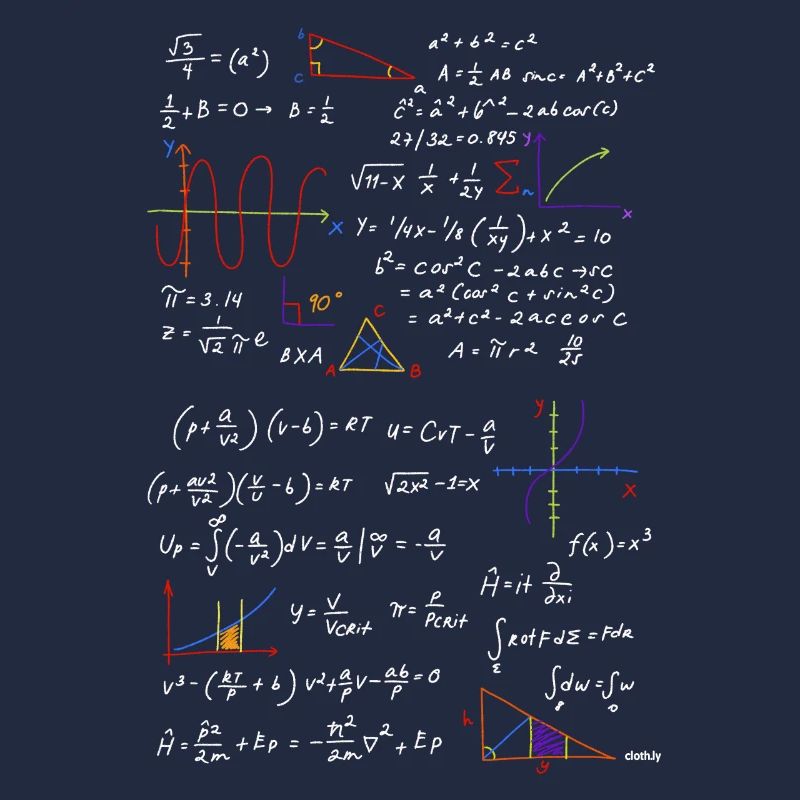 √3/4 = (a²)
b
c
a
a² + b² = c²
A = 1/2 AB sinc = A²+B²+C²
1/2 + B = 0 → B = 1/2
ĉ² = â² + b^² - 2ab cos(c)
27/32 = 0.845
y
x
y
x
√11-x 1/x + 1/2y Σ n
Y = 1/4x - 1/8 (1/xy) + x² = 10
b² = cos²C - 2abc → sc
= a² (cos²c + sin²c)
= a² + c² - 2ac cos C
π = 3.14
90°
z = 1/√2π e
BXA
C
A
B
A = πr2 10/25
(p + a/v2) (v-b) = RT
u = CvT - a/v
(p + av2/v2)(v/u - b) = RT
√2x² - 1 = x
y
x
Up = ∫v∞ (-a/v²) dv = a/v |∞v = -a/v
f(x) = x³
Ĥ = it ∂/∂xi
y = v/vcrit
π = P/Pcrit
∫Σ Rot F dΣ = FdR
v³ - (RT/P + b) v² + a/P v - ab/P = 0
∫dw = ∫w
Ĥ = p̂2/2m + Ep = - ħ²/2m ∇² + Ep
h
y
cloth.ly